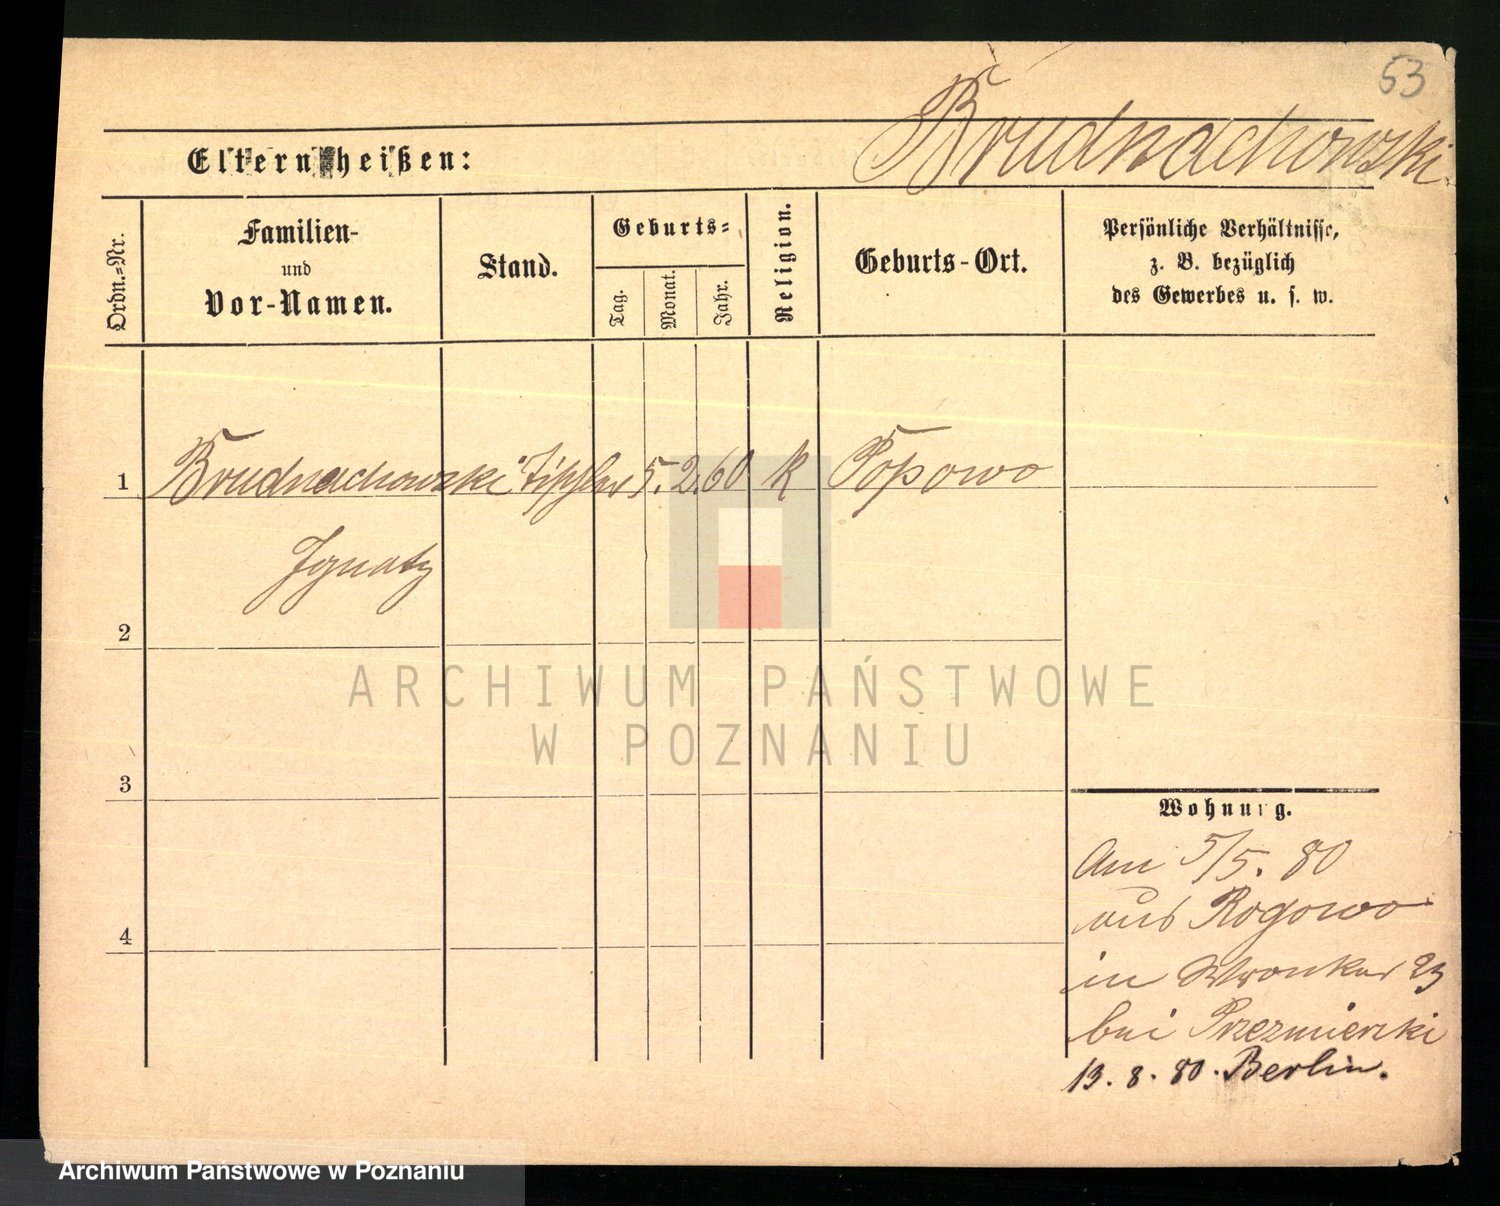 53
Brudnachowski.
Eltern heißen:
Ordn.=Nr.
Familien-
und
Vor-Namen.
Stand.
Geburts=
Tag.
Monat.
Jahr.
Religion.
Geburts-Ort.
Persönliche Verhältnisse,
z. B. bezüglich
des Gewerbes u. s. w.
1 Brudnachowski Tischler 5. 2. 60 k Popowo
Ignatz
2
ARCHIWUM PAŃSTWOWE
W POZNANIU
3
Wohnung.
Am 5/5. 80
aus Rogowo
4
in Wronker 23
bei Przezmierski
13. 8. 80. Berlin.
Archiwum Państwowe w Poznaniu